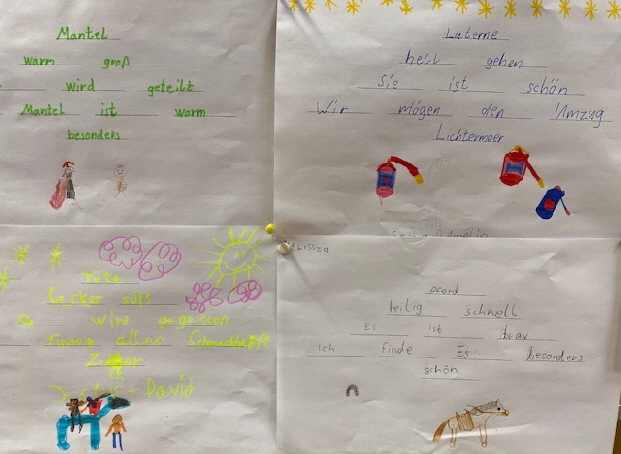 Mantel
warm groß
wird geteilt
Mantel ist warm
besonders
Laterne
hell gehen
Sie ist schön
Wir mögen den Umzug
Lichtermeer
Lecker süß
wird gegessen
allen
David
Elissza
Pferd
heilig schnell
Es ist brav
Ich finde Es besonders
schön